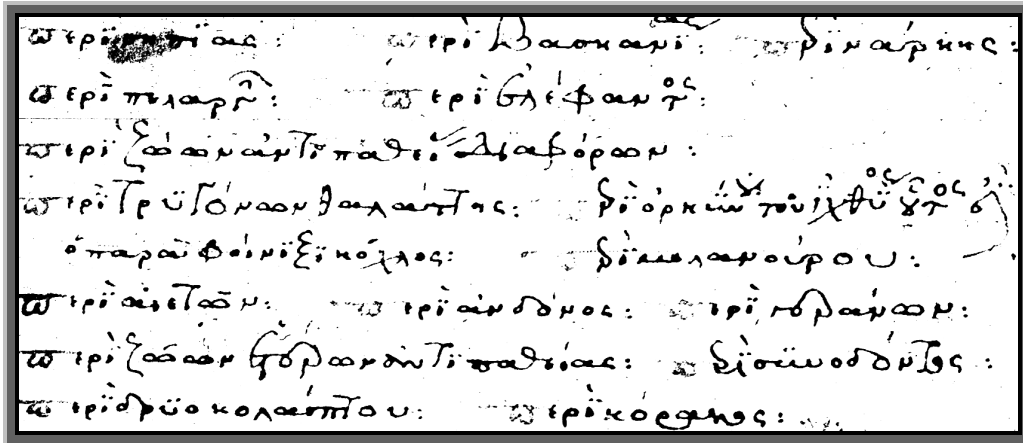 περὶ ίας : περὶ βασκανίας : περὶ νάρκης :
περὶ πελαργῶν : περὶ ἐλέφαντος :
περὶ ζώων ἀντιπαθείας διαφόρων :
περὶ τρυγόνων θαλάττης : περὶ ὀρκύνων τοῦ ἰχθύος οὗτος
ὁ παρὰ φοίνιξι κόχλος : περὶ μελανούρου :
περὶ αἰετῶν : περὶ ἀηδόνος : περὶ γεράνων :
περὶ ζώων ἑτέρων ἀντιπαθείας : περὶ συνόδοντος :
περὶ δρυοκολάπτου : περὶ κόρακος :